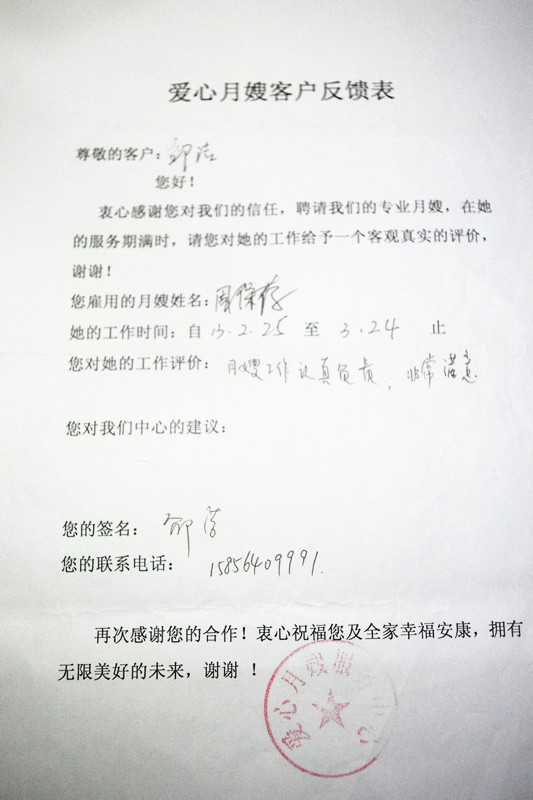 爱心月嫂客户反馈表
尊敬的客户：
您好！
衷心感谢您对我们的信任，聘请我们的专业月嫂，在她
的服务期满时，请您对她的工作给予一个客观真实的评价，
谢谢！
您雇用的月嫂姓名：周保存
她的工作时间：自 13.2.25 至 3.24 止
您对她的工作评价：月嫂工作认真负责，非常满意
您对我们中心的建议：
您的签名：
您的联系电话：15856409991.
再次感谢您的合作！衷心祝福您及全家幸福安康，拥有
无限美好的未来，谢谢 ！
爱心月嫂服务中心